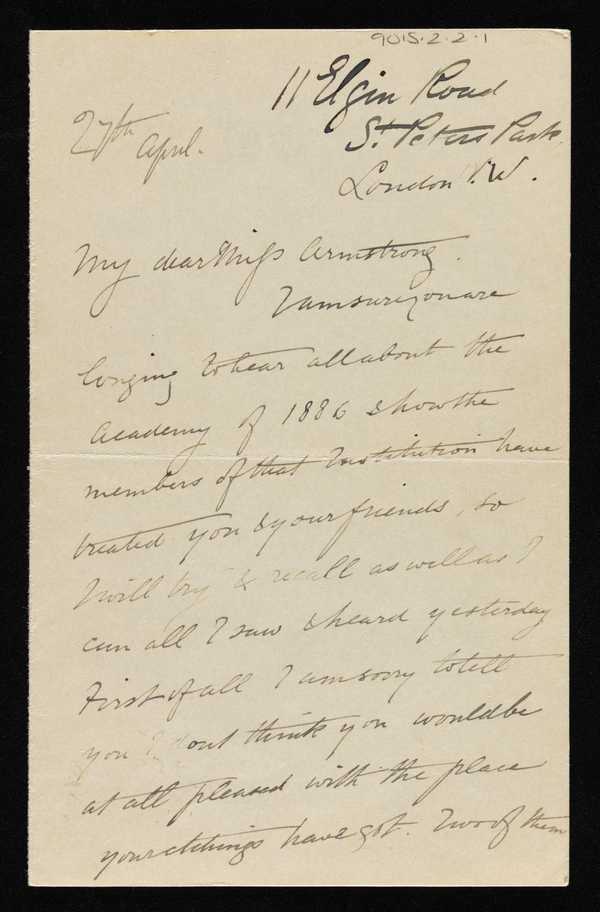 9015·2·2·1
11 Elgin Road
St. Peters Park.
London W.
27th April.
My dear Miss Armstrong.
I am sure you are
longing to hear all about the
Academy of 1886 & how the
members of that Institution have
treated you & your friends, so
I will try & recall as well as I
can all I saw & heard yesterday
First of all I am sorry to tell
you I dont think you would be
at all pleased with the place
your etchings have got. Two of them